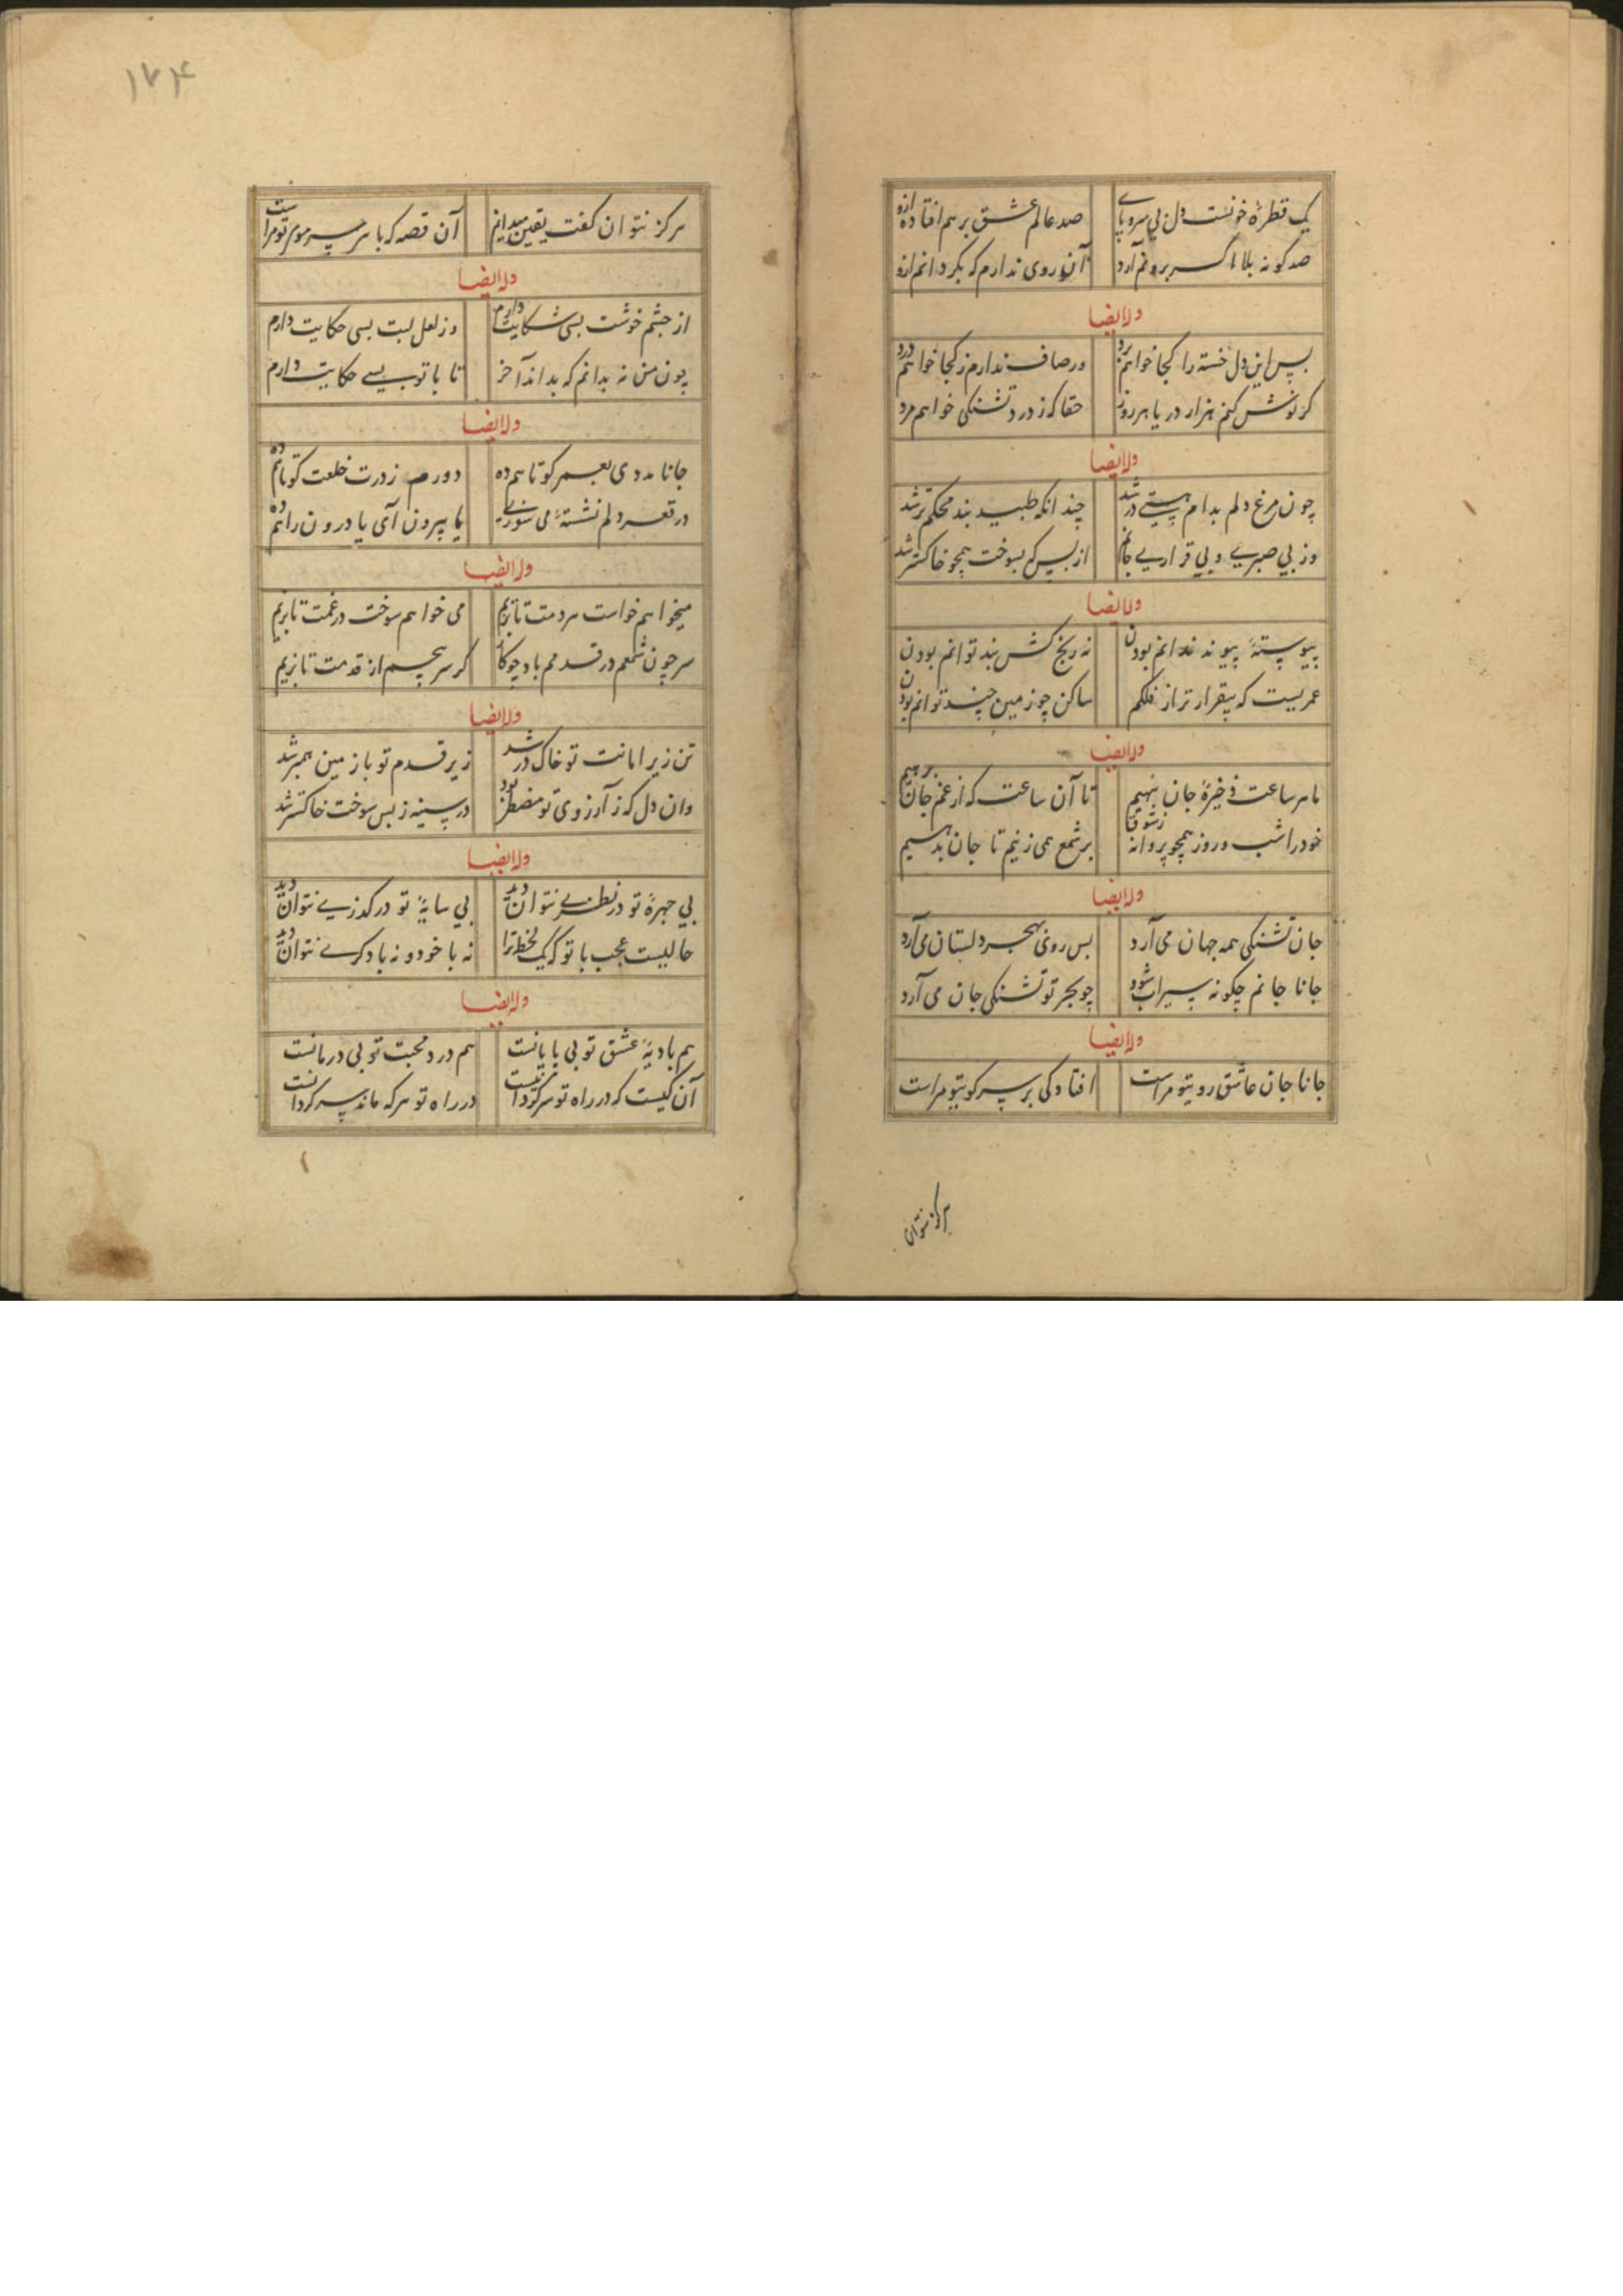 یک قطرهٔ خونست دل بی سر و پای
صد عالم عشق بر هم افتاده ازو
صد کونه بلا اکر برویم آرد
آن روی ندارم که بکردانم ازو
وله ایضا
بس این دل خسته را کجا خواهم برد
ور صاف ندارم ز کجا خواهم درد
کر نوش کنم هزار دریا هر روز
حقا که ز درد تشنکی خواهم مرد
وله ایضا
چون مرغ دلم بدام هستی در شد
چندانکه طپید بند محکم تر شد
وز بی صبری و بی قراری جانم
از بس که بسوخت همچو خاکستر شد
وله ایضا
پیوستهٔ پیوند ندانم بودن
نه رنج کش بند توانم بودن
عمریست که بیقرارتر از فلکم
ساکن چو زمین چند توانم بودن
وله ایضا
ما هر ساعت ذخیرهٔ جان بنهیم
تا آن ساعت که از غم جان برهیم
خود را شب و روز همچو پروانه ز شوق
بر شمع همی زنیم تا جان بدهیم
وله ایضا
جان تشنکی همه جهان می آرد
بس روی بهجر دلستان می آرد
جانا جانم چکونه سیراب شود
چو بحر تو تشنکی جان می آرد
وله ایضا
جانا جان عاشق روی تو مراست
افتادکی بر سر کوی تو مراست
هرکز نتوان
۱۷۴
هرکز نتوان کفت یقین میدانم
آن قصه که با هر سر موی تو مراست
وله ایضا
از چشم خوشت بسی شکایت دارم
وز لعل لبت بسی حکایت دارم
چون من نه بدانم که بداند آخر
تا با تو بسی حکایت دارم
وله ایضا
جانا مددی بعمر کوتاهم ده
دورم ز درت خلعت کوتاهم ده
در قعر دلم نشستهٔ می شوری
یا بیرون آی یا درون راهم ده
وله ایضا
میخواهم خواست مرحمت تا بزیم
می خواهم سوخت در غمت تا بزیم
سر چون شمعم در قدمم باد چو کاز
کر سر پیچم از قدمت تا بزیم
وله ایضا
تن زیر امانت تو خاک در شد
زیر قدم تو با زمین همبر شد
وان دل که ز آرزوی تو مضطر بود
در سینه ز بس سوخت خاکستر شد
وله ایضا
بی چهرهٔ تو در نظری نتوان دید
بی سایهٔ تو در کدری نتوان دید
حالیست عجب با تو که یک لحظه ترا
نه با خود و نه با دکری نتوان دید
وله ایضا
هم بادیهٔ عشق تو بی پایانست
هم درد محبت تو بی درمانست
آن کیست که در راه تو سرکردان نیست
در راه تو هر که ماند سرکردانست